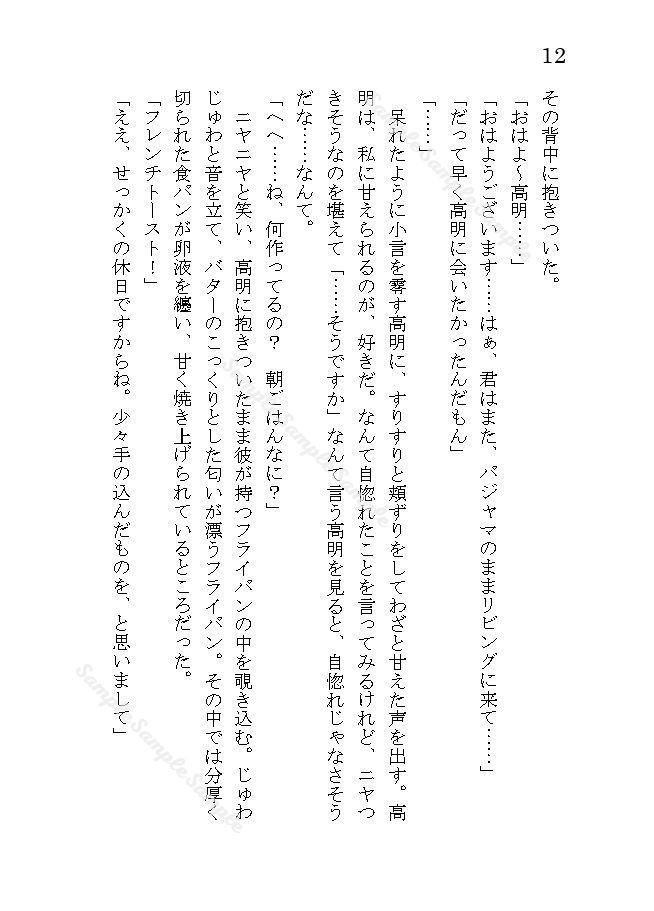 12
その背中に抱きついた。
「おはよ～高明……」
「おはようございます……はぁ、君はまた、パジャマのままリビングに来て……」
「だって早く高明に会いたかったんだもん」
「……」
呆れたように小言を零す高明に、すりすりと頬ずりをしてわざと甘えた声を出す。高
明は、私に甘えられるのが、好きだ。なんて自惚れたことを言ってみるけれど、ニヤつ
きそうなのを堪えて「……そうですか」なんて言う高明を見ると、自惚れじゃなさそう
だな……なんて。
「へへ……ね、何作ってるの？　朝ごはんなに？」
ニヤニヤと笑い、高明に抱きついたまま彼が持つフライパンの中を覗き込む。じゅわ
じゅわと音を立て、バターのこっくりとした匂いが漂うフライパン。その中では分厚く
切られた食パンが卵液を纏い、甘く焼き上げられているところだった。
「フレンチトースト！」
「ええ、せっかくの休日ですからね。少々手の込んだものを、と思いまして」
SampleSampleSample
SampleSampleSample
SampleSampleSample